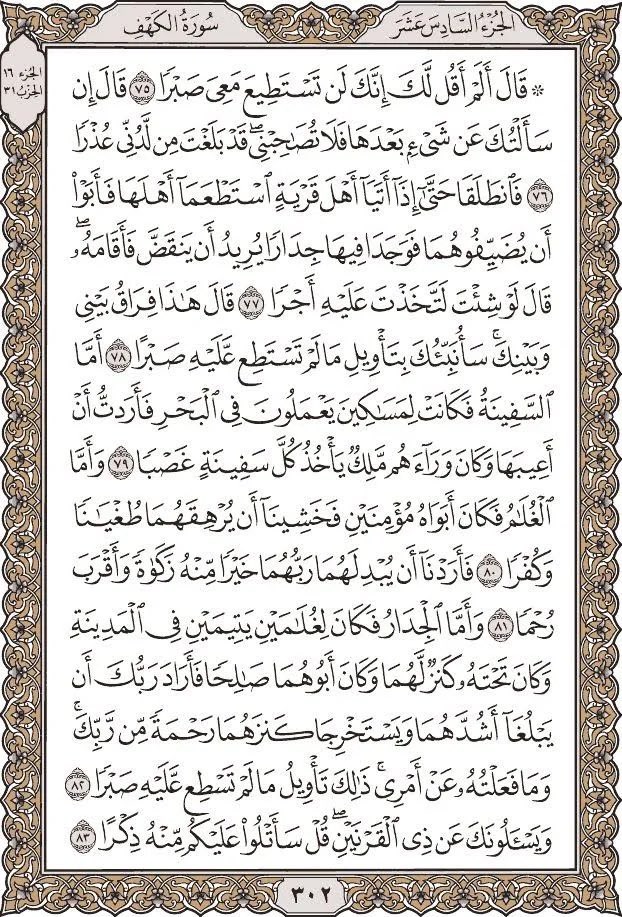 الجُزْءُ السَّادِسَ عَشَرَ
سُورَةُ الكَهْفِ
الجُزء ١٦
الحِزْب ٣١
۞ قَالَ أَلَمْ أَقُل لَّكَ إِنَّكَ لَن تَسْتَطِيعَ مَعِيَ صَبْرًا ٧٥ قَالَ إِن
سَأَلْتُكَ عَن شَيْءٍ بَعْدَهَا فَلَا تُصَٰحِبْنِي ۖ قَدْ بَلَغْتَ مِن لَّدُنِّي عُذْرًا
٧٦ فَٱنطَلَقَا حَتَّىٰٓ إِذَآ أَتَيَآ أَهْلَ قَرْيَةٍ ٱسْتَطْعَمَآ أَهْلَهَا فَأَبَوْا۟
أَن يُضَيِّفُوهُمَا فَوَجَدَا فِيهَا جِدَارًا يُرِيدُ أَن يَنقَضَّ فَأَقَامَهُۥ ۖ
قَالَ لَوْ شِئْتَ لَتَّخَذْتَ عَلَيْهِ أَجْرًا ٧٧ قَالَ هَٰذَا فِرَاقُ بَيْنِي
وَبَيْنِكَ ۚ سَأُنَبِّئُكَ بِتَأْوِيلِ مَا لَمْ تَسْتَطِع عَّلَيْهِ صَبْرًا ٧٨ أَمَّا
ٱلسَّفِينَةُ فَكَانَتْ لِمَسَٰكِينَ يَعْمَلُونَ فِي ٱلْبَحْرِ فَأَرَدتُّ أَنْ
أَعِيبَهَا وَكَانَ وَرَآءَهُم مَّلِكٌ يَأْخُذُ كُلَّ سَفِينَةٍ غَصْبًا ٧٩ وَأَمَّا
ٱلْغُلَٰمُ فَكَانَ أَبَوَاهُ مُؤْمِنَيْنِ فَخَشِينَآ أَن يُرْهِقَهُمَا طُغْيَٰنًا
وَكُفْرًا ٨٠ فَأَرَدْنَآ أَن يُبْدِلَهُمَا رَبُّهُمَا خَيْرًا مِّنْهُ زَكَوٰةً وَأَقْرَبَ
رُحْمًا ٨١ وَأَمَّا ٱلْجِدَارُ فَكَانَ لِغُلَٰمَيْنِ يَتِيمَيْنِ فِي ٱلْمَدِينَةِ
وَكَانَ تَحْتَهُۥ كَنزٌ لَّهُمَا وَكَانَ أَبُوهُمَا صَٰلِحًا فَأَرَادَ رَبُّكَ أَن
يَبْلُغَآ أَشُدَّهُمَا وَيَسْتَخْرِجَا كَنزَهُمَا رَحْمَةً مِّن رَّبِّكَ ۚ
وَمَا فَعَلْتُهُۥ عَنْ أَمْرِي ۚ ذَٰلِكَ تَأْوِيلُ مَا لَمْ تَسْطِع عَّلَيْهِ صَبْرًا ٨٢
وَيَسْـَٔلُونَكَ عَن ذِي ٱلْقَرْنَيْنِ ۖ قُلْ سَأَتْلُوا۟ عَلَيْكُم مِّنْهُ ذِكْرًا ٨٣
٣٠٢